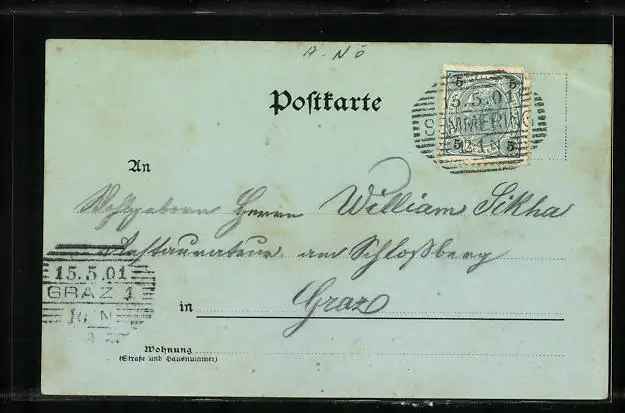 A - NÖ
Postkarte
5 5
15.5.01
SEMMERING
5 12-1.N 5
An
Wohlgeboren Herrn William Sikha
Restaurateur am Schloßberg
15.5.01
GRAZ 1
in Graz
10 N
Wohnung
(Straße und Hausnummer)